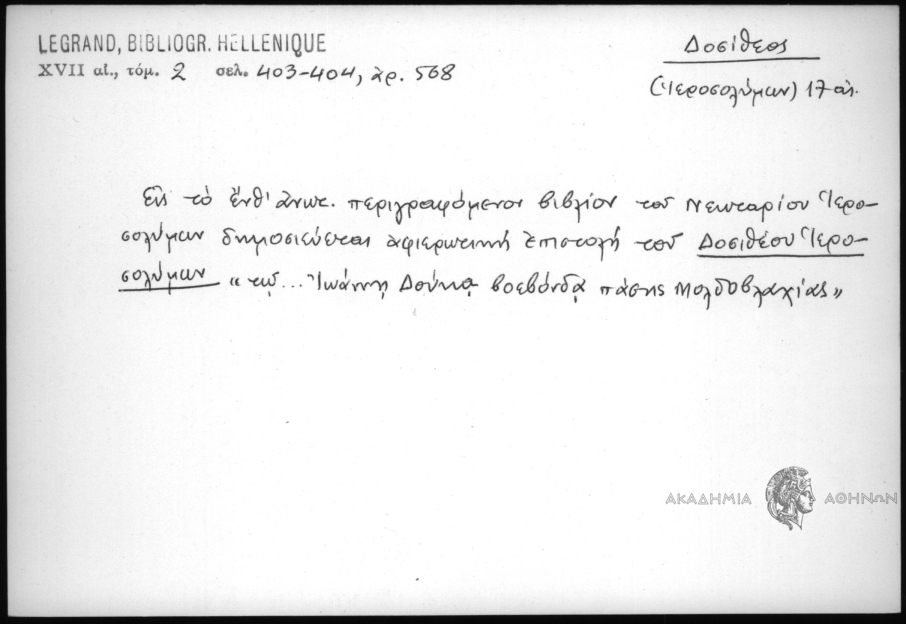 LEGRAND, BIBLIOGR. HELLENIQUE
XVII αἰ., τόμ. 2 σελ. 403-404, ἀρ. 568
Δοσίθεος
(Ἱεροσολύμων) 17 αἰ.
Εἰς τὸ ἔνθ' ἀνωτ. περιγραφόμενον βιβλίον τοῦ Νεκταρίου Ἱερο-
σολύμων δημοσιεύεται ἀφιερωτικὴ ἐπιστολὴ τοῦ Δοσιθέου Ἱερο-
σολύμων « τῷ ... Ἰωάννῃ Δούκᾳ βοεβόνδᾳ πάσης Μολδοβλαχίας »
ΑΚΑΔΗΜΙΑ ΑΘΗΝΩΝ